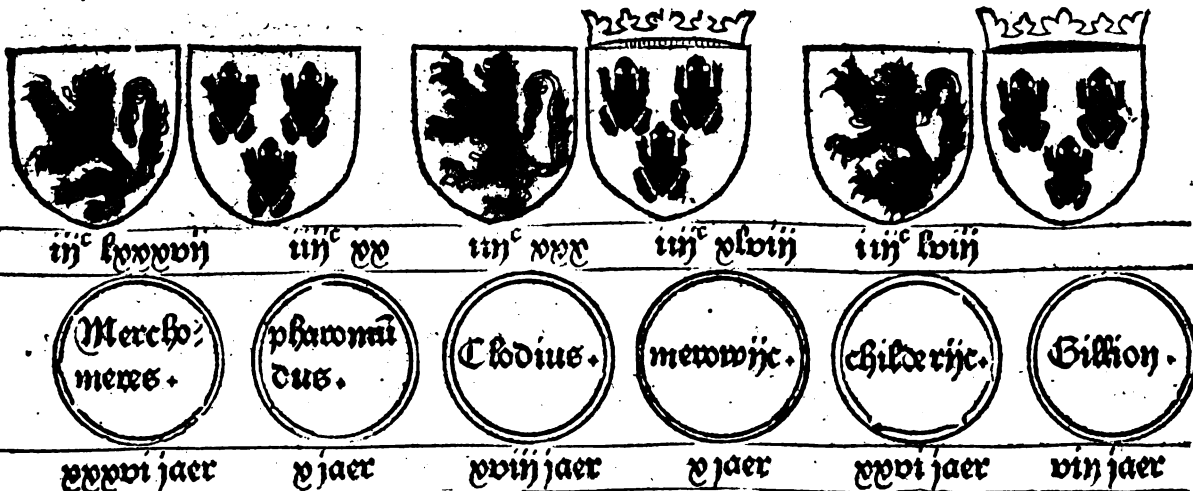 iijᶜ lxxxvij iiijᶜ xx iiijᶜ xxx iiijᶜ xlviij iiijᶜ lviij
Mercho⸗ pharomū Clodius. merowijc. childerijc. Gillion.
meres. dus.
xxxvi jaer x jaer xviij jaer x jaer xxvi jaer viij jaer